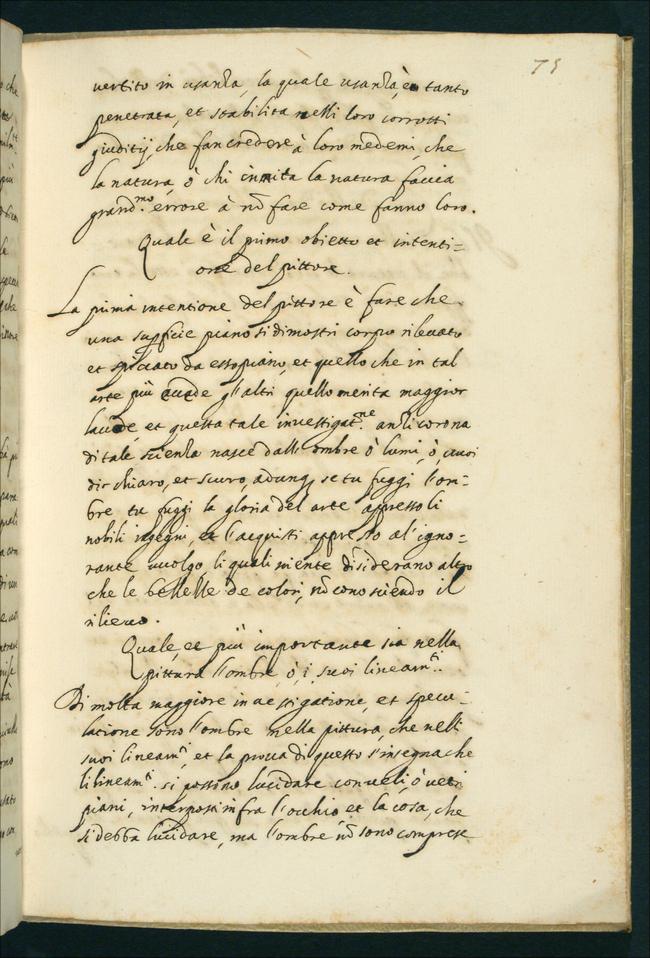 75
vertito in usanza, la quale usanza, è tanto
penetrata, et stabilita nelli loro corrotti
giuditij, che fan credere à loro medemi, che
la natura, ò chi immita la natura faccia
grand.mo errore à nō fare come fanno loro.
Quale è il primo obietto et intenti=
one del pittore.
La prima intentione del pittore è fare che
una supficie piano si dimostri corpo rileuato
et spiccato da esso piano, et quello che in tal
arte più eccede gl'altri quello merita maggior
laude, et questa tale inuestigat.ne anzi corona
di tale scienza nasce dall'ombre ò lumi, ò, uuoi
dir chiaro, et scuro, adunq, se tu fuggi l'om-
bre tu fuggi la gloria del arte appresso li
nobili ingegni, et l'acquisti appresso al'igno-
rante uuolgo, li quali niente disiderano altro
che le bellezze de colori, nō conosciendo il
rilieuo.
Quale, et più importante sia nella
pittura l'ombre, ò, i, suoi lineam.ti.
Di molta maggiore inuestigatione, et specu-
latione sono l'ombre nella pittura, che nelli
suoi lineam.ti, et la proua di questo s'insegna che
li lineam.ti si possino lucidare con ueli, ò uetri
piani, interposti infra l'occhio et la cosa, che
si debba lucidare, ma l'ombre nō sono comprese